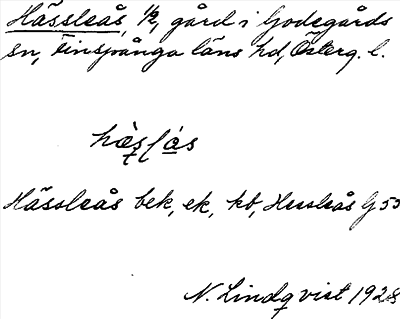 Hässleås, 1/2, gård i Godegårds
sn, Finspånga läns hd, Österg. l.
hæ̀sļás
Hässleås bek, ek, kb, Hessleås G 53
N. Lindqvist 1928